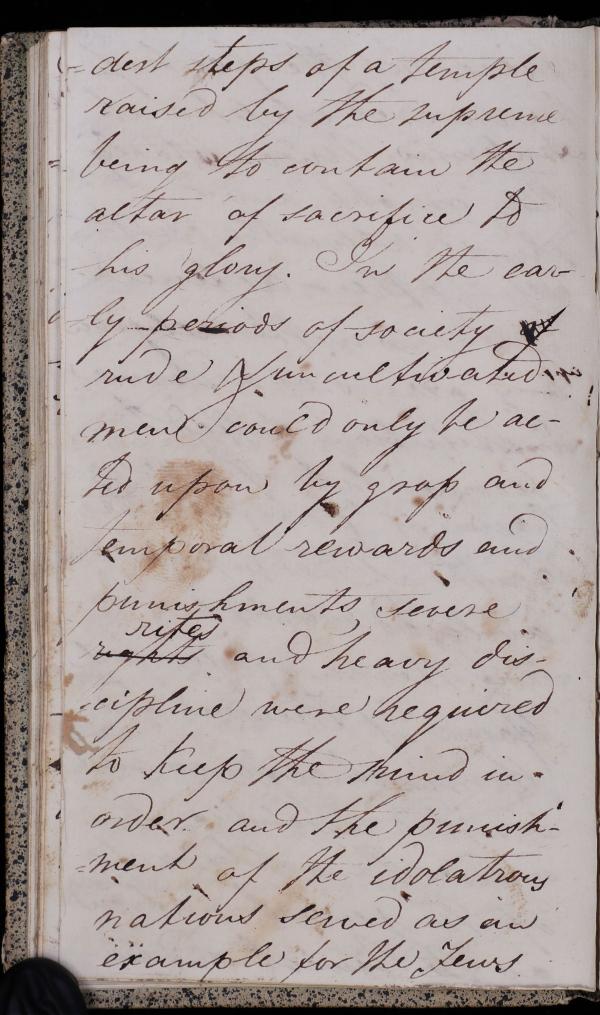 =dest steps of a temple
raised by the supreme
being to contain the
altar of sacrifice to
his glory. In the ear-
-ly periods of society
rude & uncultivated
men could only be ac-
ted upon by gross and
temporal rewards and
punishments, severe
rites
rights and heavy dis-
-cipline were required
to keep the mind in-
order. and the punish-
=ment of the idolatrous
nations served as an
example for the Jews.